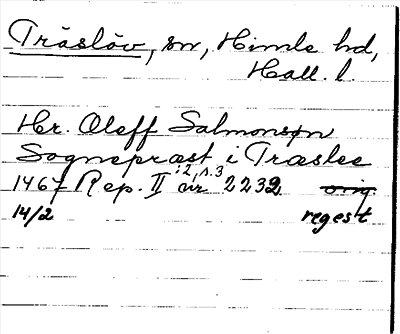 Träslöv, sn, Himle hd,
Hall. l.
Hr. Oleff Salmonsøn
Sognepræst i Træslee
1467 Rep. II :2, s.3 nr 2232 orig.
14/2 regest